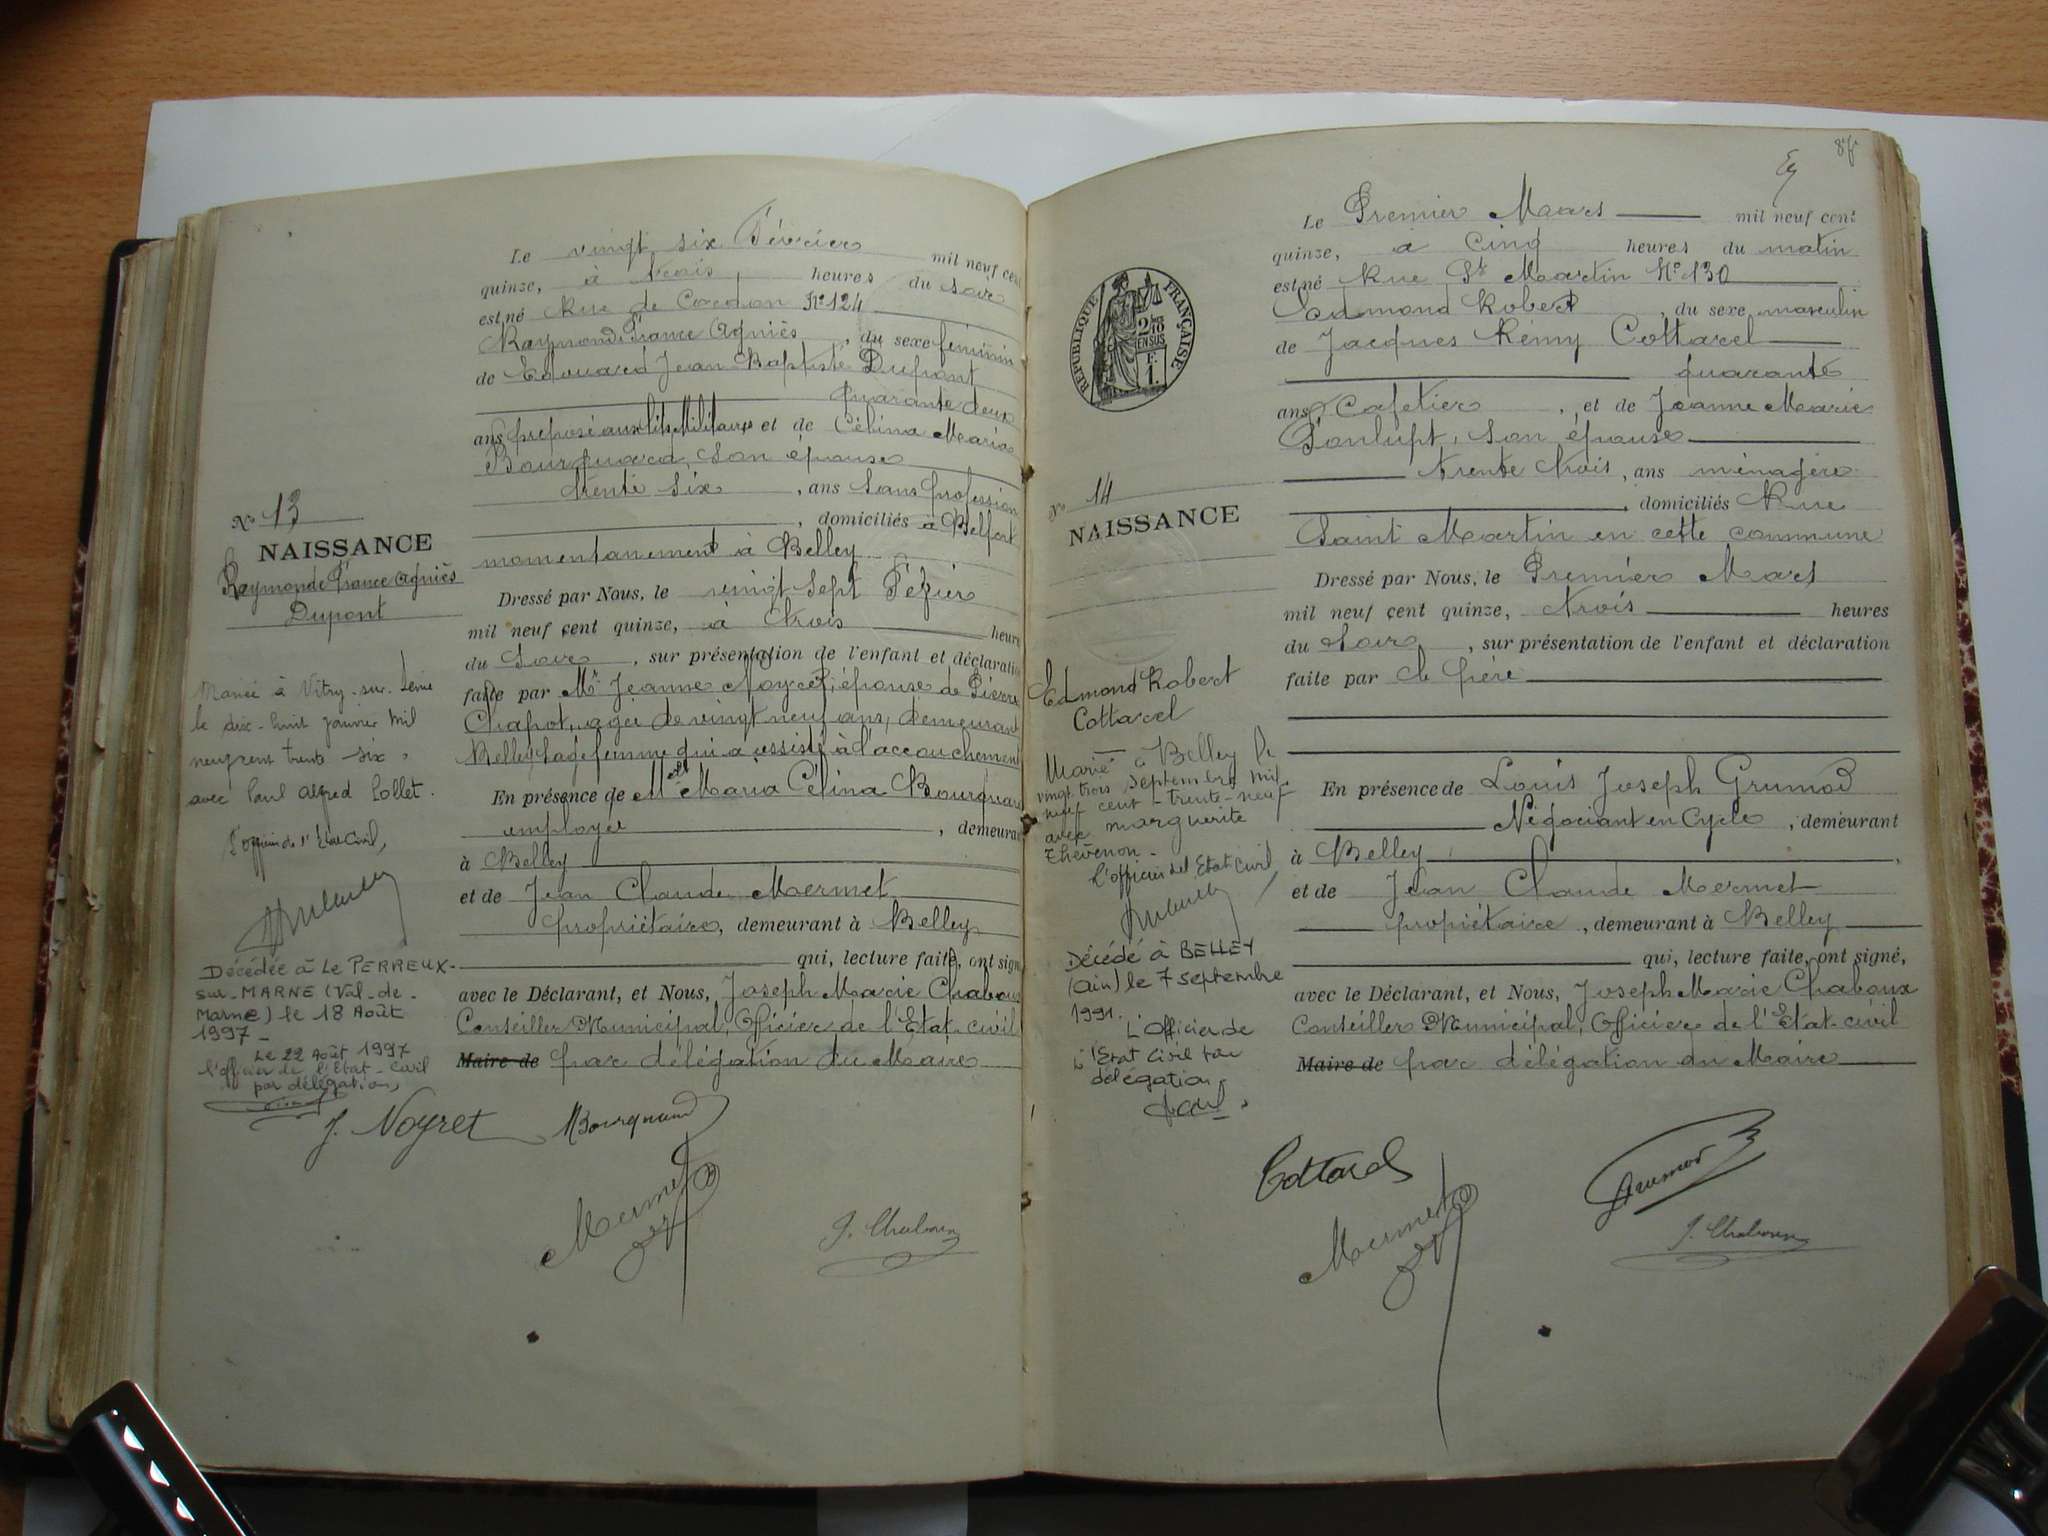 Le vingt six Février mil neuf cent
quinze, à trois, heures du soir
est né Rue de Cordon N° 124
Raymonde France Agniès, du sexe féminin
de Edouard Jean Baptiste Dupont
quarante deux
ans préposé aux lits Militaires et de Célina Maria
Bourquard, son épouse
trente six, ans sans profession
, domiciliés à Belfort
momentanement à Belley
Dressé par Nous, le vingt sept
mil neuf cent quinze, à trois heures
du soir, sur présentation de l'enfant et déclaration
faite par Jeanne Noyret, épouse de Pierre
Chapot, agée de vingt neuf ans, demeurant
Belley Sage femme qui a assisté à l'accouchement
En présence de Melle Maria Célina Bourquard
employée, demeurant
à Belley
et de Jean Claude Mermet
propriétaire, demeurant à Belley
qui, lecture faite, ont signé
avec le Déclarant, et Nous, Joseph Marie Chaboux
Conseiller Municipal, Officier de l'Etat-civil
Maire de par délégation du Maire
N° 13
NAISSANCE
Raymonde France Agniès
Dupont
Mariée à Vitry-sur-Seine
le dix-huit janvier mil
neuf cent trente-six,
avec Paul Alfred Collet.
L'officier de l'Etat Civil,
Décédée à LE PERREUX-
SUR-MARNE (Val-de-
Marne) le 18 Août
1997-
Le 22 Août 1997
l'officier de l'Etat-Civil
par délégation,
J. Noyret
MBourquard
Mermet
J. Chaboux
Le Premier Mars mil neuf cent
quinze, à cinq heures du matin
est né Rue St Martin N° 130
Edmond Robert, du sexe masculin
de Jacques Rémy Cottarel
quarante
ans Cafetier, et de Jeanne Marie
Ponlupt, son épouse
trente trois, ans ménagère
, domiciliés Rue
Saint Martin en cette commune
Dressé par Nous, le Premier Mars
mil neuf cent quinze, trois heures
du soir, sur présentation de l'enfant et déclaration
faite par le père
En présence de Louis Joseph Grumod
Négociant en Cycle, demeurant
à Belley,
et de Jean Claude Mermet
propriétaire, demeurant à Belley
qui, lecture faite, ont signé,
avec le Déclarant, et Nous, Joseph Marie Chaboux
Conseiller Municipal, Officier de l'Etat-civil
Maire de par délégation du Maire
REPUBLIQUE FRANÇAISE
N° 14
NAISSANCE
Edmond Robert
Cottarel
Marié à Belley le
vingt trois septembre mil
neuf cent-trente-neuf
avec marguerite
Thévenon-
l'officier de l'Etat Civil
Décédé à BELLEY
(Ain) le 7 septembre
1991.
L'Officier de
l'Etat Civil par
délégation.
Cottarel
Grumod
Mermet
J. Chaboux